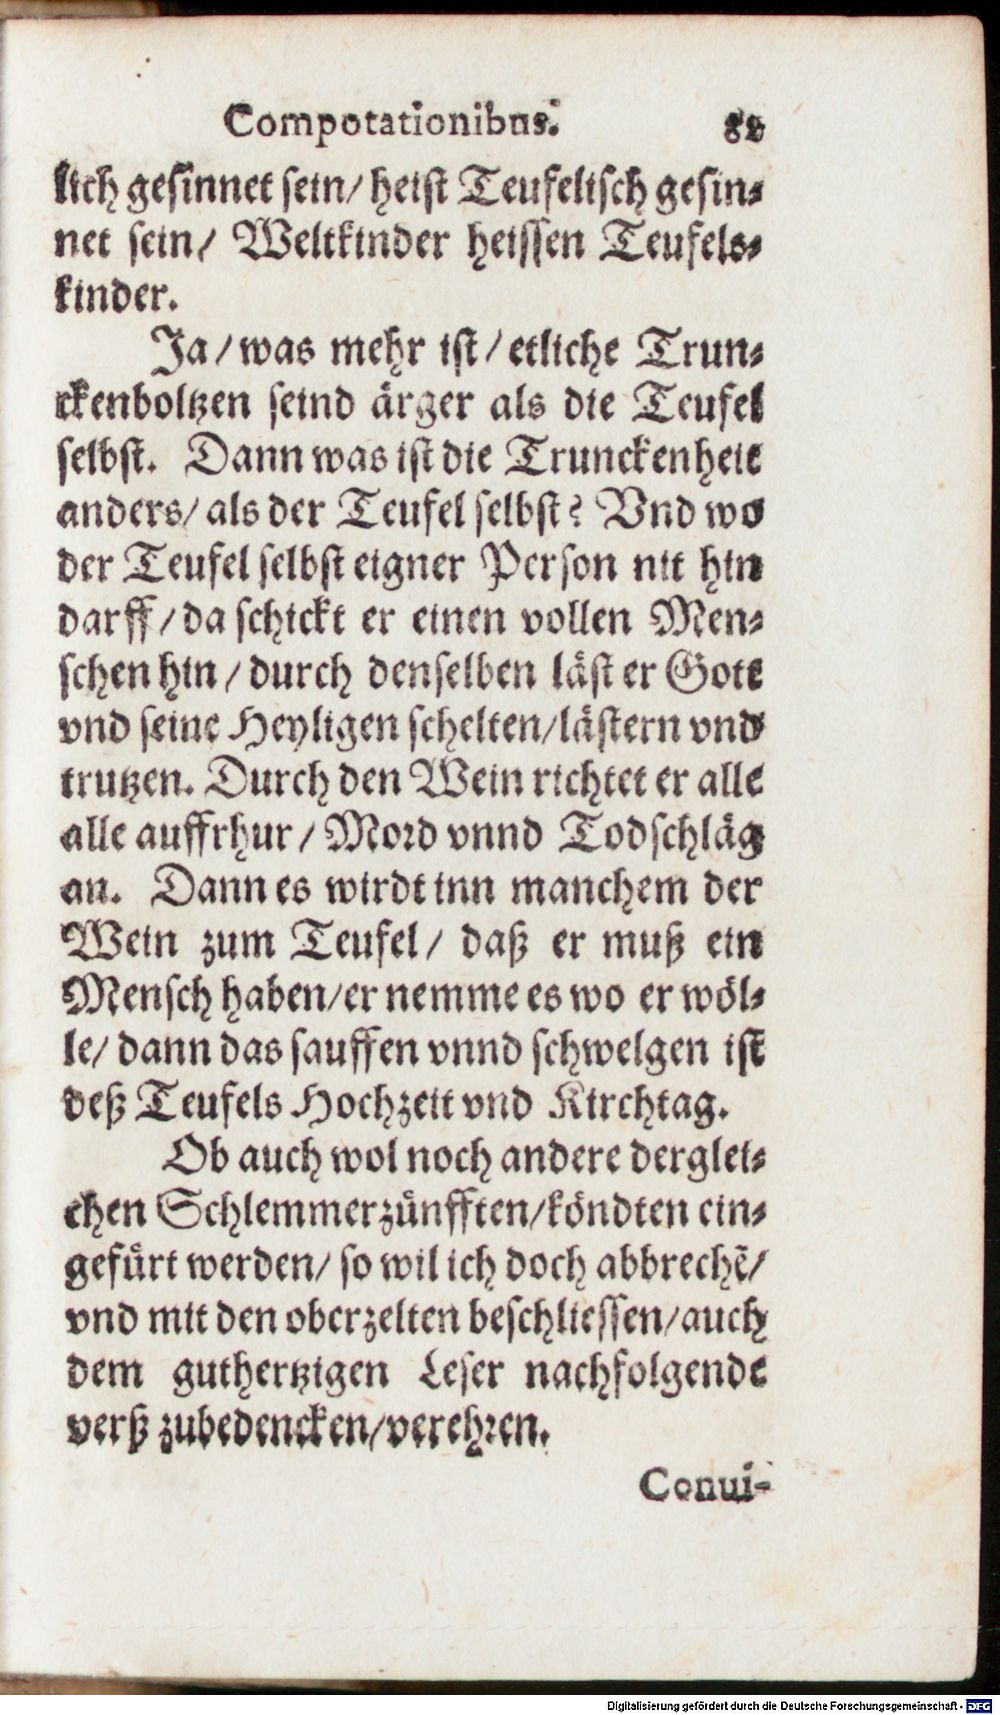 Compotationibus.
lich gesinnet sein/ heist Teufelisch gesin⸗
net sein/ Weltkinder heissen Teufels⸗
kinder.
Ja/ was mehr ist/ etliche Trun⸗
ckenboltzen seind ärger als die Teufel
selbst. Dann was ist die Trunckenheit
anders/ als der Teufel selbst? Vnd wo
der Teufel selbst eigner Person nit hin
darff/ da schickt er einen vollen Men⸗
schen hin/ durch denselben läst er Gott
vnd seine Heyligen schelten/ lästern vnd
trutzen. Durch den Wein richtet er alle
alle auffrhur/ Mord vnnd Todschläg
an. Dann es wirdt inn manchem der
Wein zum Teufel/ daß er muß ein
Mensch haben/ er nemme es wo er wöl⸗
le/ dann das sauffen vnnd schwelgen ist
deß Teufels Hochzeit vnd Kirchtag.
Ob auch wol noch andere derglei⸗
chen Schlemmerzünfften/ köndten ein⸗
gefürt werden/ so wil ich doch abbrechẽ/
vnd mit den oberzelten beschliessen/ auch
dem guthertzigen Leser nachfolgende
verß zubedencken/ verehren.
Conui-
Digitalisierung gefördert durch die Deutsche Forschungsgemeinschaft - DFG